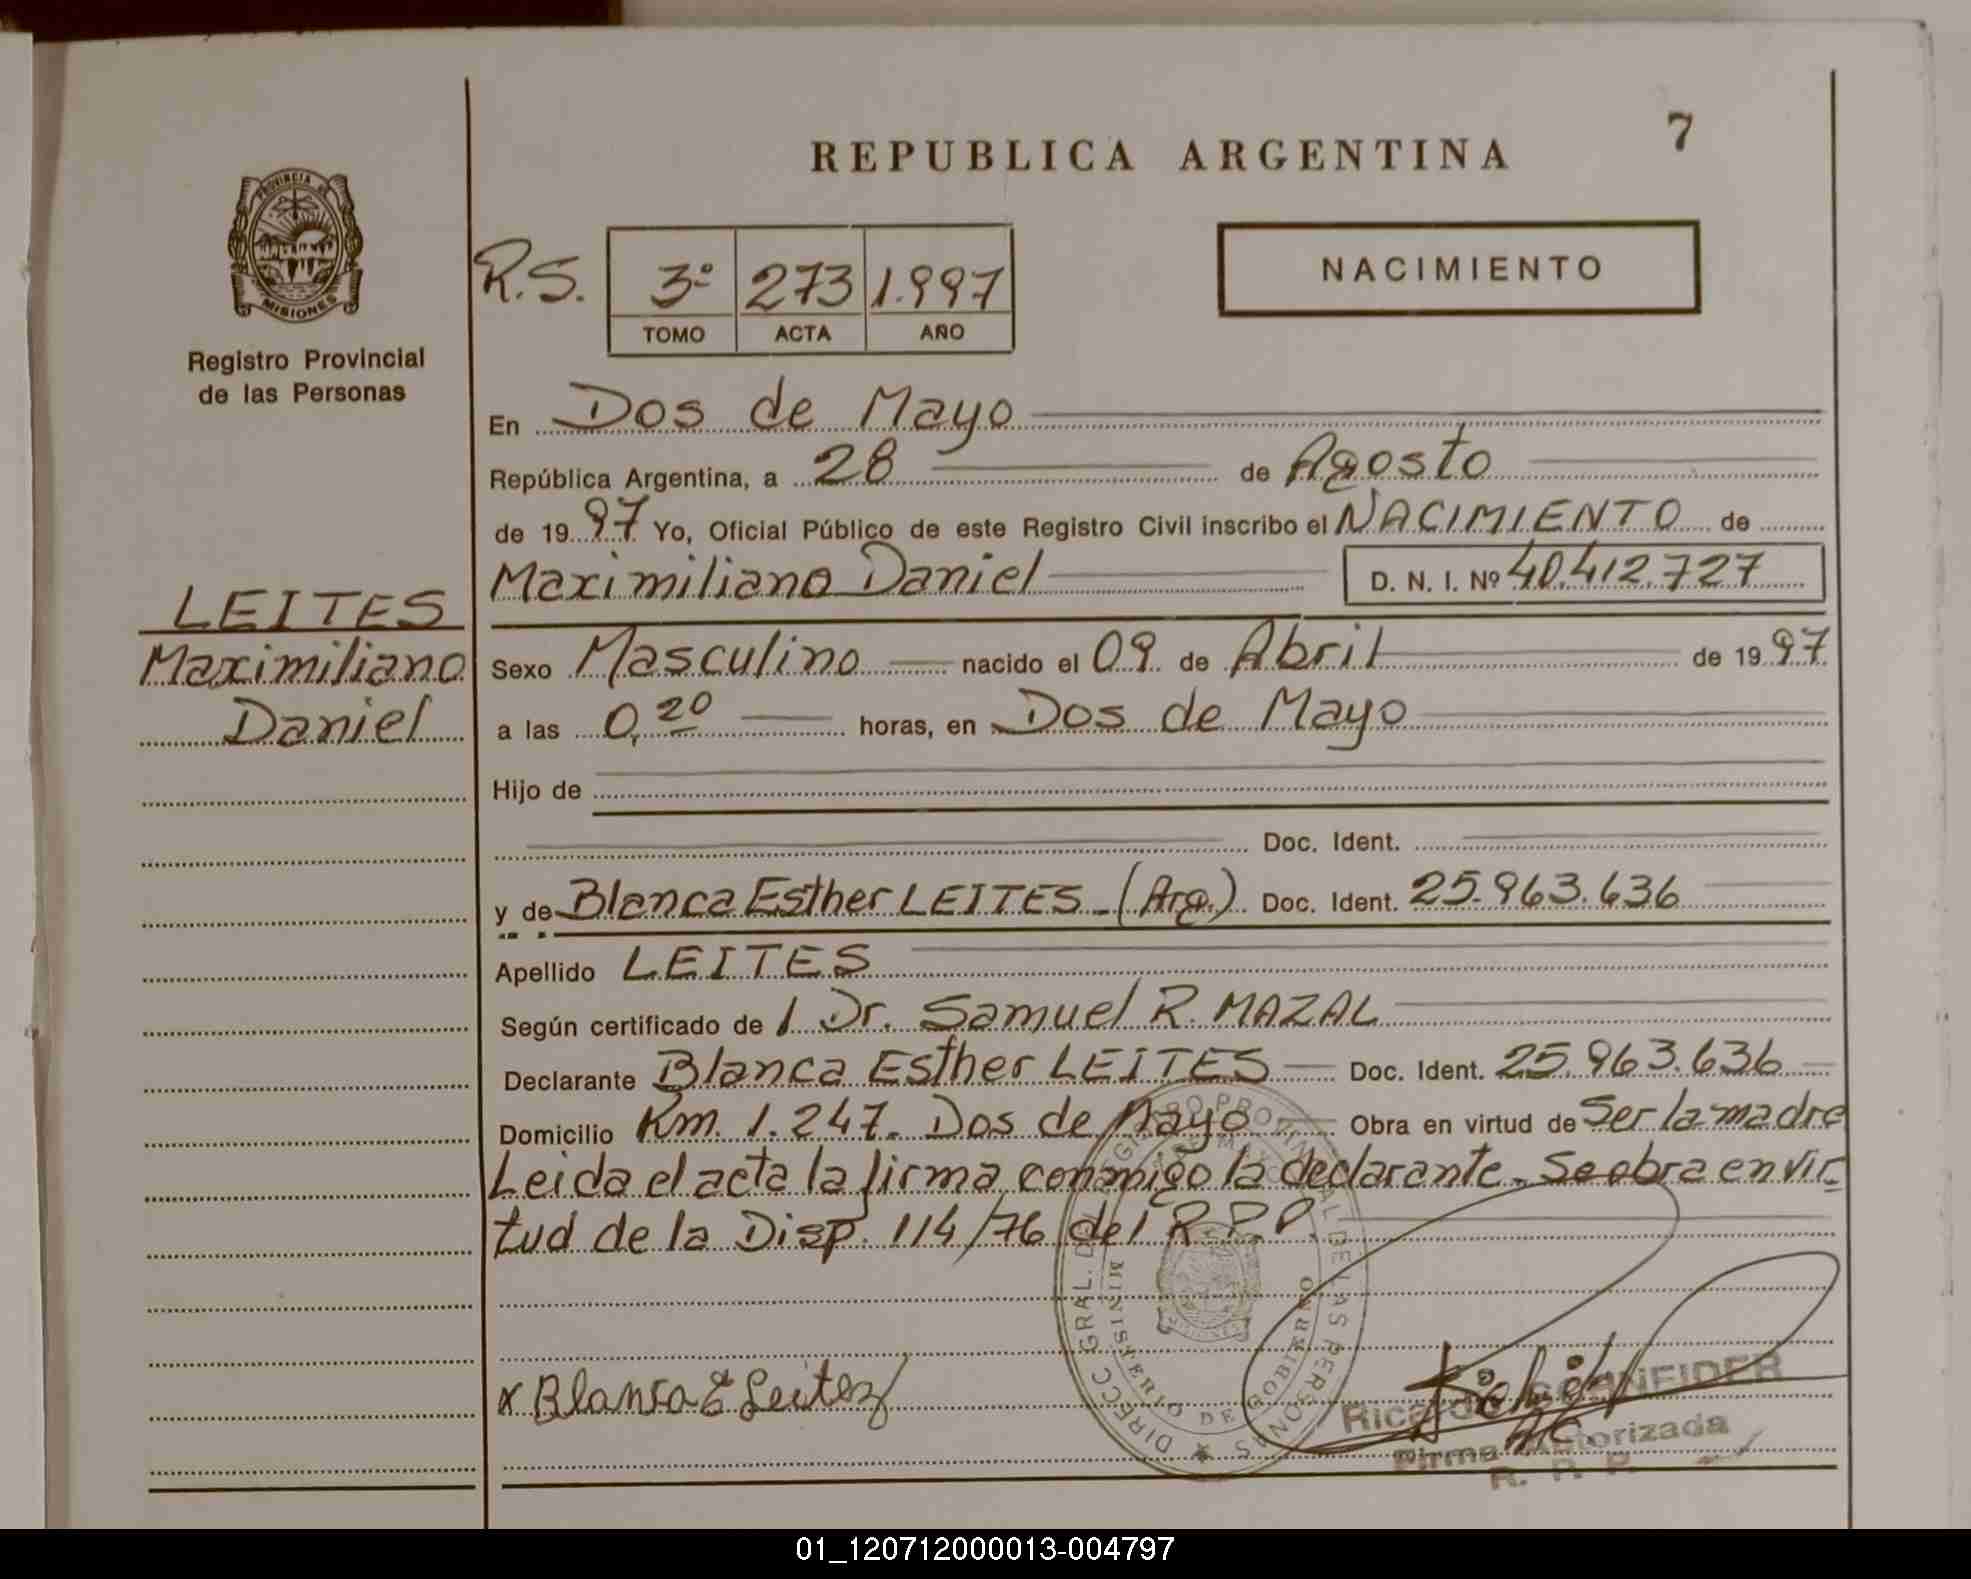 7
REPUBLICA ARGENTINA
PROVINCIA DE
MISIONES
Registro Provincial
de las Personas
NACIMIENTO
R.S. 3º 273 1.997
TOMO ACTA AÑO
En Dos de Mayo
República Argentina, a 28 de Agosto
de 19 97 Yo, Oficial Público de este Registro Civil inscribo el NACIMIENTO de
Maximiliano Daniel D. N. I. Nº 40.412.727
LEITES
Maximiliano
Daniel
Sexo Masculino nacido el 09 de Abril de 19 97
a las 0,20 horas, en Dos de Mayo
Hijo de
Doc. Ident.
y de Blanca Esther LEITES - (Arg.) Doc. Ident. 25.963.636
Apellido LEITES
Según certificado de / Dr. Samuel R. MAZAL
Declarante Blanca Esther LEITES Doc. Ident. 25.963.636
Domicilio Km. 1.247. Dos de Mayo Obra en virtud de Ser la madre
Leida el acta la firma conmigo la declarante. Se obra en vir-
tud de la Disp. 114/76 del R.P.P.
DIRECC. GRAL. DEL REGISTRO PROVINCIAL DE LAS PERSONAS
MINISTERIO DE GOBIERNO
x Blanca E Leites
Ricardo SCHNEIDER
Firma Autorizada
R. P. P.
01_120712000013-004797